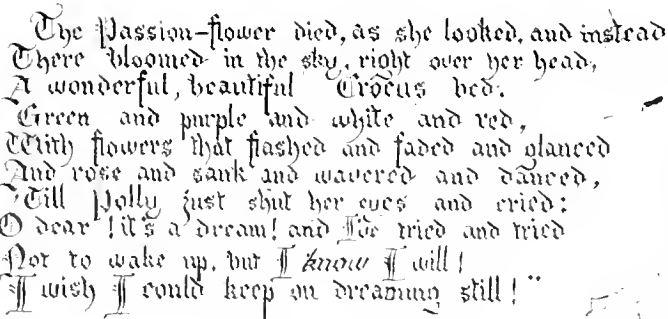 The Passion-flower died, as she looked, and instead
There bloomed in the sky, right over her head,
A wonderful, beautiful Crocus bed.
Green and purple and white and red,
With flowers that flashed and faded and glanced
And rose and sank and wavered and danced,
'Till Polly just shut her eyes and cried:
O dear! it's a dream! and I've tried and tried
Not to wake up, but I know I will!
I wish I could keep on dreaming still!"